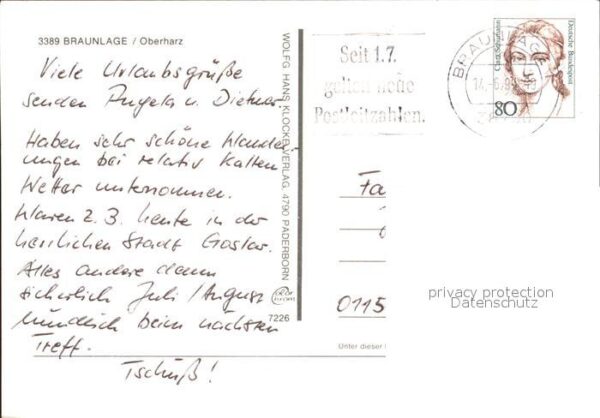 3389 BRAUNLAGE / Oberharz
Viele Urlaubsgrüße
senden Angela u. Dietmar.
Haben sehr schöne Wander-
ungen bei relativ kalten
Wetter unternommen.
Waren z. B. heute in der
herrlichen Stadt Goslar.
Alles andere dann
sicherlich Juli / August
mündlich beim nächsten
Treff.
Tschüß!
WOLFG. HANS KLOCKE VERLAG, 4790 PADERBORN
7226
Seit 1.7.
gelten neue
Postleitzahlen.
BRAUNLAGE
Deutsche Bundespost
80
Fa
0115
privacy protection
Datenschutz
Unter dieser